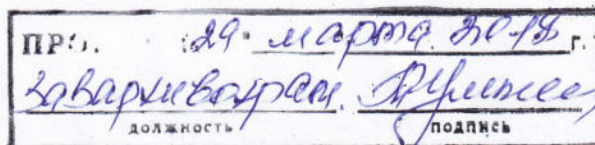 ПРО. "29" марта 2018 г.
Завархивохран.
должность подпись